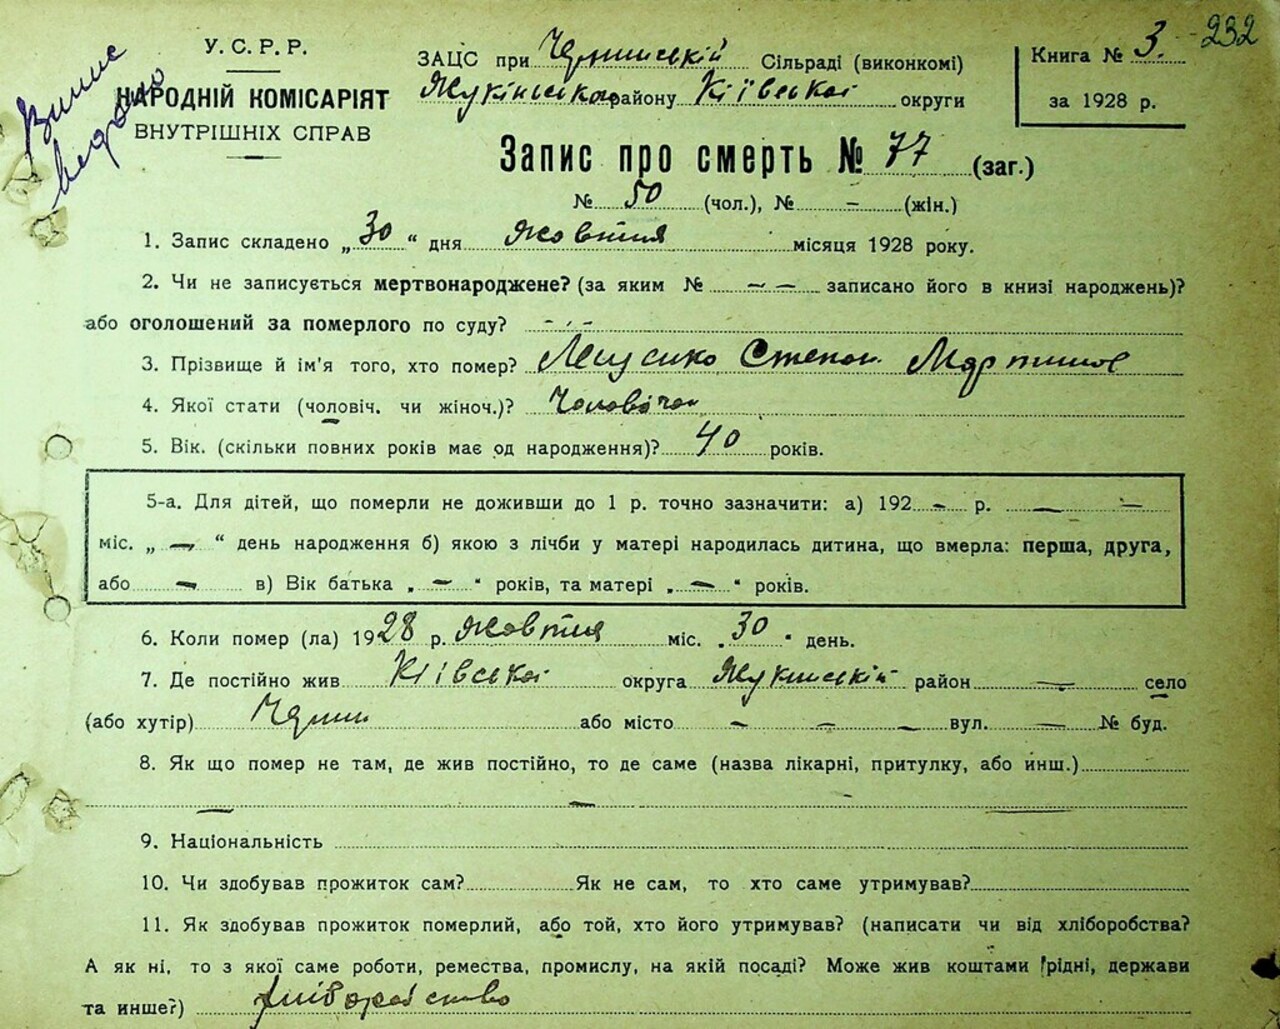 232
Випис видано
У.С.Р.Р.
НАРОДНІЙ КОМІСАРІЯТ
ВНУТРІШНІХ СПРАВ
ЗАЦС при Сільраді (виконкомі)
Жукінського району Київської округи
Книга № 3.
за 1928 р.
Запис про смерть № 77 (заг.)
№ 50 (чол.), № – (жін.)
1. Запис складено „30“ дня жовтня місяця 1928 року.
2. Чи не записується мертвонароджене? (за яким № – – записано його в книзі народжень)?
або оголошений за померлого по суду? - - -
3. Прізвище й ім'я того, хто помер? Степан Мартинов
4. Якої стати (чоловіч. чи жіноч.)? Чоловічої
5. Вік. (скільки повних років має од народження)? 40 років.
5-а. Для дітей, що померли не доживши до 1 р. точно зазначити: а) 192 – р. – –
міс. „ – “ день народження б) якою з лічби у матері народилась дитина, що вмерла: перша, друга,
або – в) Вік батька „ – “ років, та матері „ – “ років.
6. Коли помер (ла) 1928 р. жовтня міс. „30“ день.
7. Де постійно жив Київської округа Жукинській район – село
(або хутір) або місто – – – вул. – № буд.
8. Як що помер не там, де жив постійно, то де саме (назва лікарні, притулку, або инш.)
– – –
9. Національність
10. Чи здобував прожиток сам? Як не сам, то хто саме утримував?
11. Як здобував прожиток померлий, або той, хто його утримував? (написати чи від хліборобства?
А як ні, то з якої саме роботи, ремества, промислу, на якій посаді? Може жив коштами рідні, держави
та инше?) хліборобство